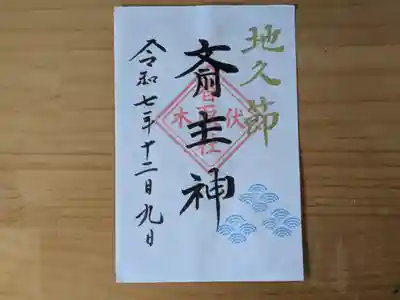 地久節
斎主神
伏木
令和七年十二月九日